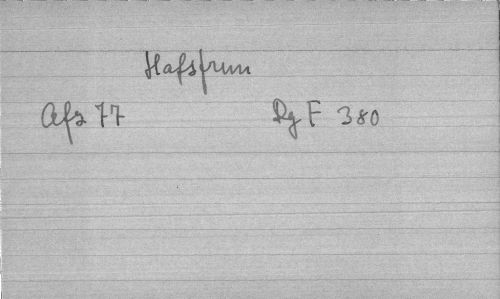 Hafsfrun
Afz 77 Rg F 380